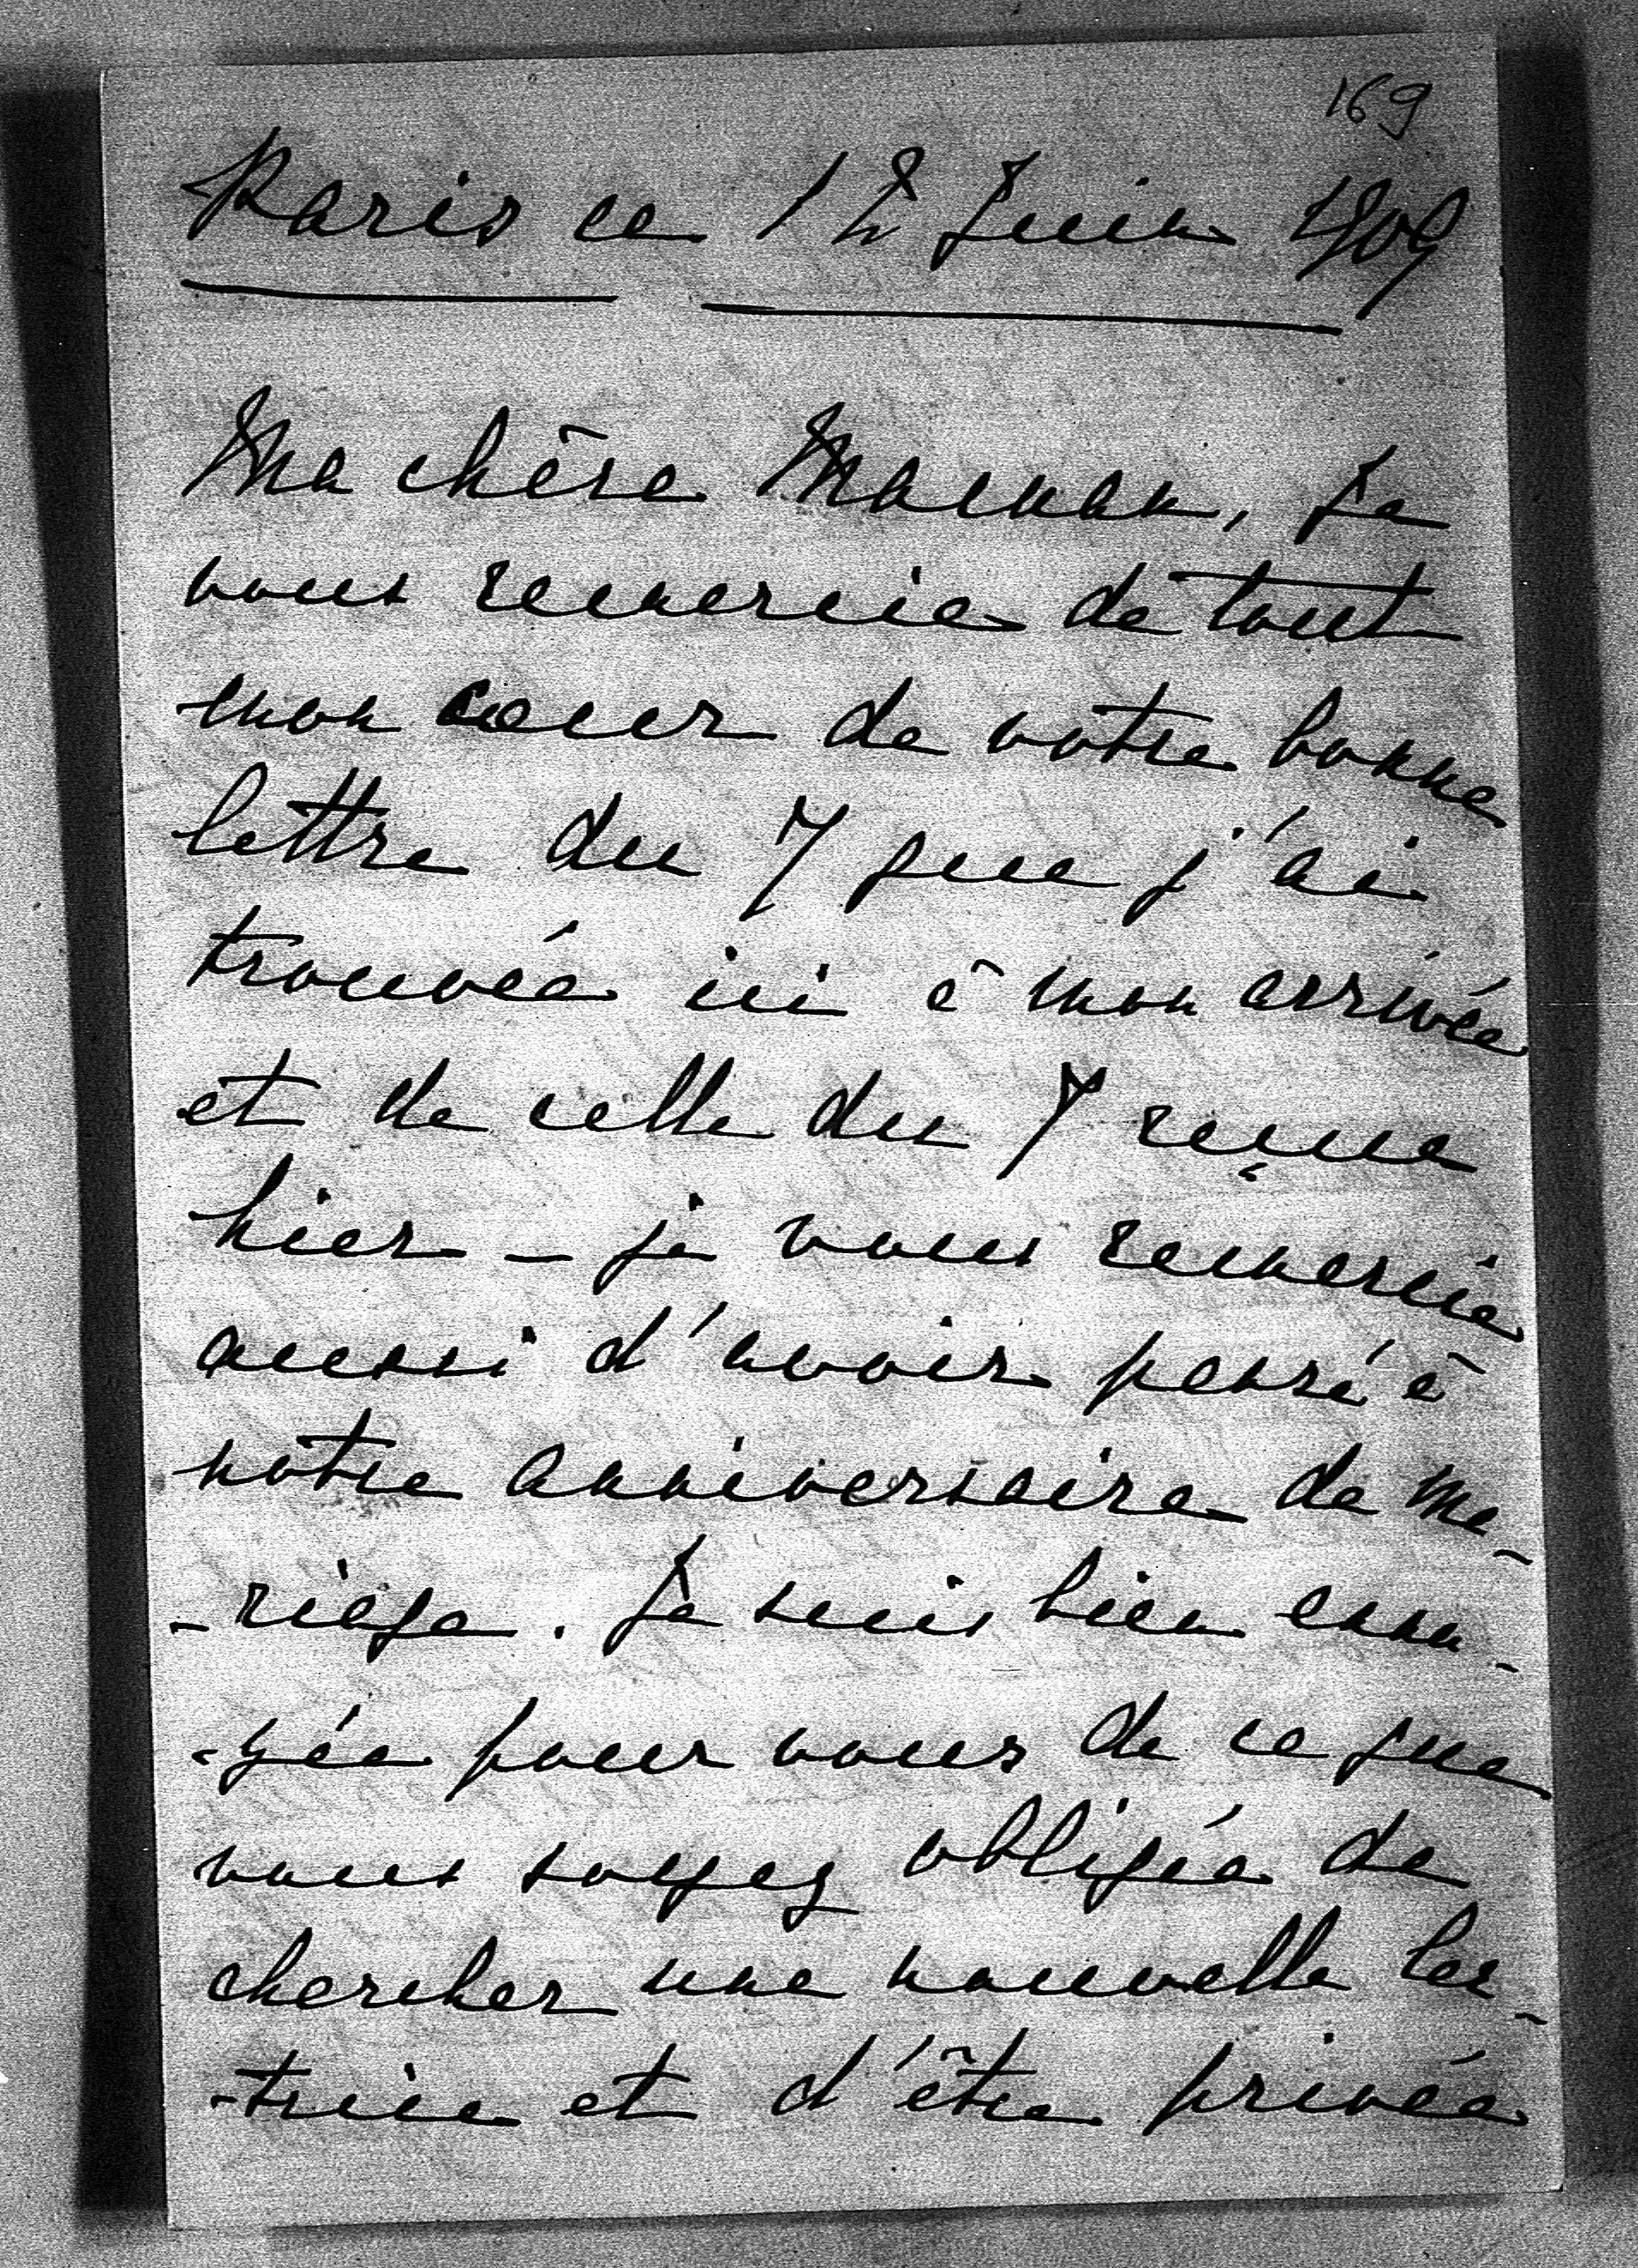 169
Paris ce 12 Juin 1909
Ma chère Maman, Je
vous remercie de tout
mon coeur de votre bonne
lettre du 7 que j'ai
trouvée ici à mon arrivée
et de celle du 7 reçue
hier - je vous remercie
aussi d'avoir pensé à
notre anniversaire de ma-
-riage. Je suis bien ennu-
-yée pour vous de ce que
vous soyez obligée de
chercher une nouvelle lec-
-trice et d'être privée